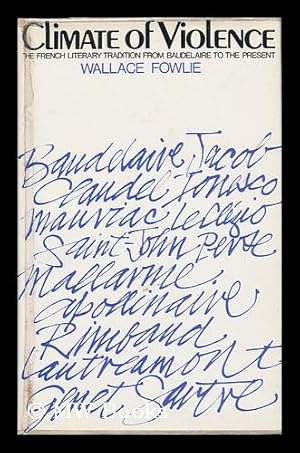 Climate of Violence
THE FRENCH LITERARY TRADITION FROM BAUDELAIRE TO THE PRESENT
WALLACE FOWLIE
Baudelaire Jacob
Claudel Ionesco
Mauriac le Clézio
Saint-John Perse
Mallarmé
Apollinaire
Rimbaud
Lautréamont
Genet Sartre
© MW Books